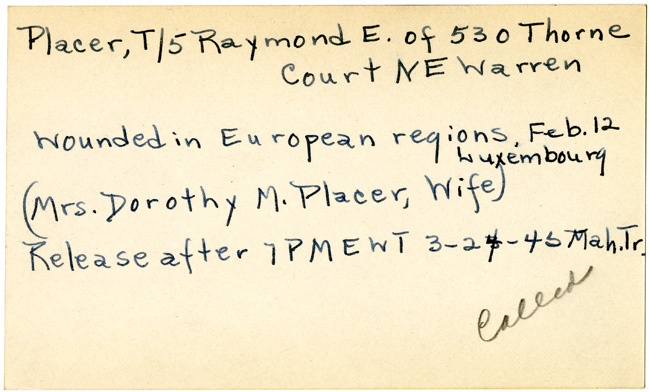 Placer, T/5 Raymond E. of 530 Thorne
Court NE Warren
Wounded in European regions, Feb. 12
Luxembourg
(Mrs. Dorothy M. Placer, Wife)
Release after 7PM EWT 3-24-45 Mah. Tr.
Called